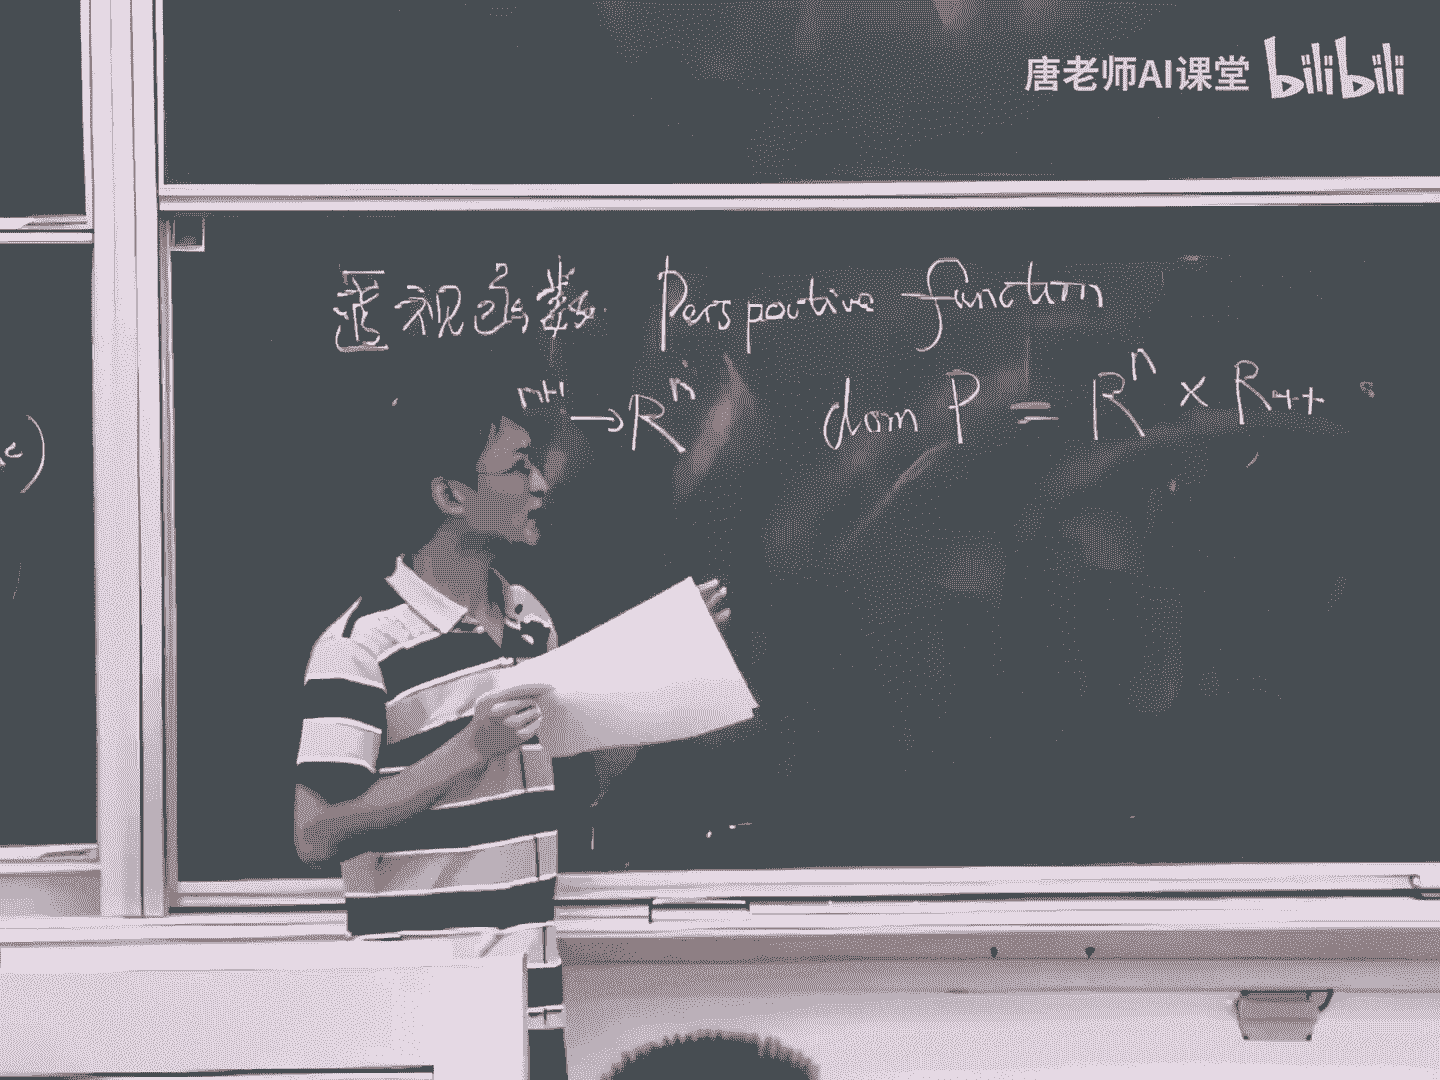 唐老师AI课堂 bilibili
透视函数 Perspective function
n+1 → R^n dom P = R^n × R_++